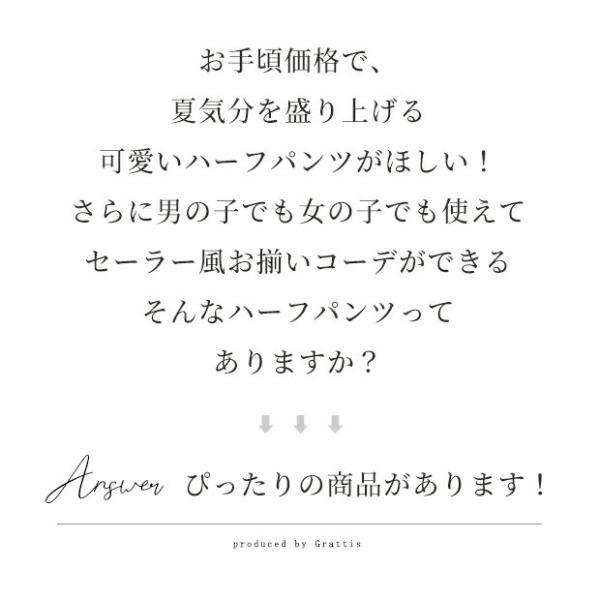 お手頃価格で、
夏気分を盛り上げる
可愛いハーフパンツがほしい！
さらに男の子でも女の子でも使えて
セーラー風お揃いコーデができる
そんなハーフパンツって
ありますか？
Answer ぴったりの商品があります！
produced by Grattis